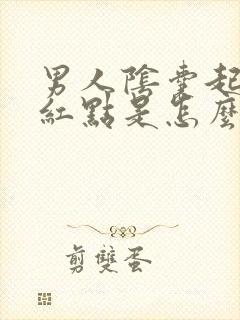 男人陰囊起
紅點是怎麼
剪雙蛋